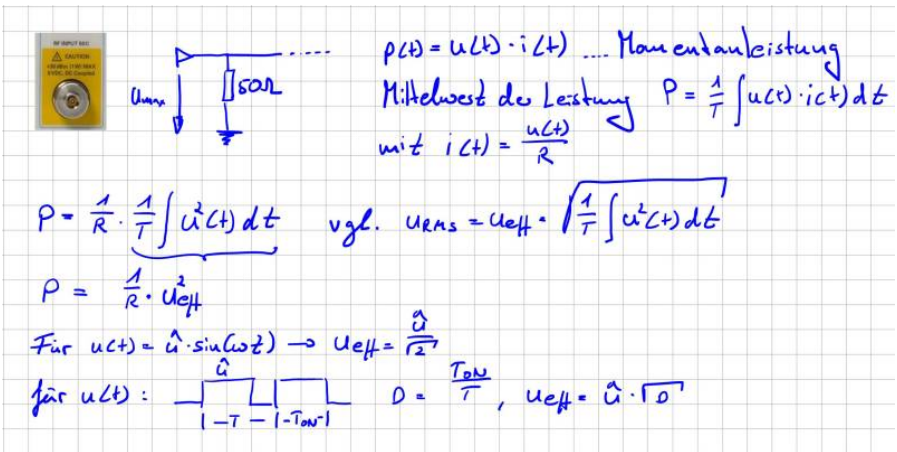 RF INPUT 50Ω
CAUTION
+30dBm (1W) MAX
Umax
50Ω
p(t) = u(t) · i(t) .... Momentanleistung
Mittelwert der Leistung P = 1/T ∫ u(t) · i(t) dt
mit i(t) = u(t)/R
P = 1/R · 1/T ∫ u²(t) dt vgl. URMS = Ueff = √(1/T ∫ u²(t) dt)
P = 1/R · U²eff
Für u(t) = û · sin(ωt) → Ueff = û/√2
û
für u(t) : D = TON/T , Ueff = û · √D
|-T-|-TON-|